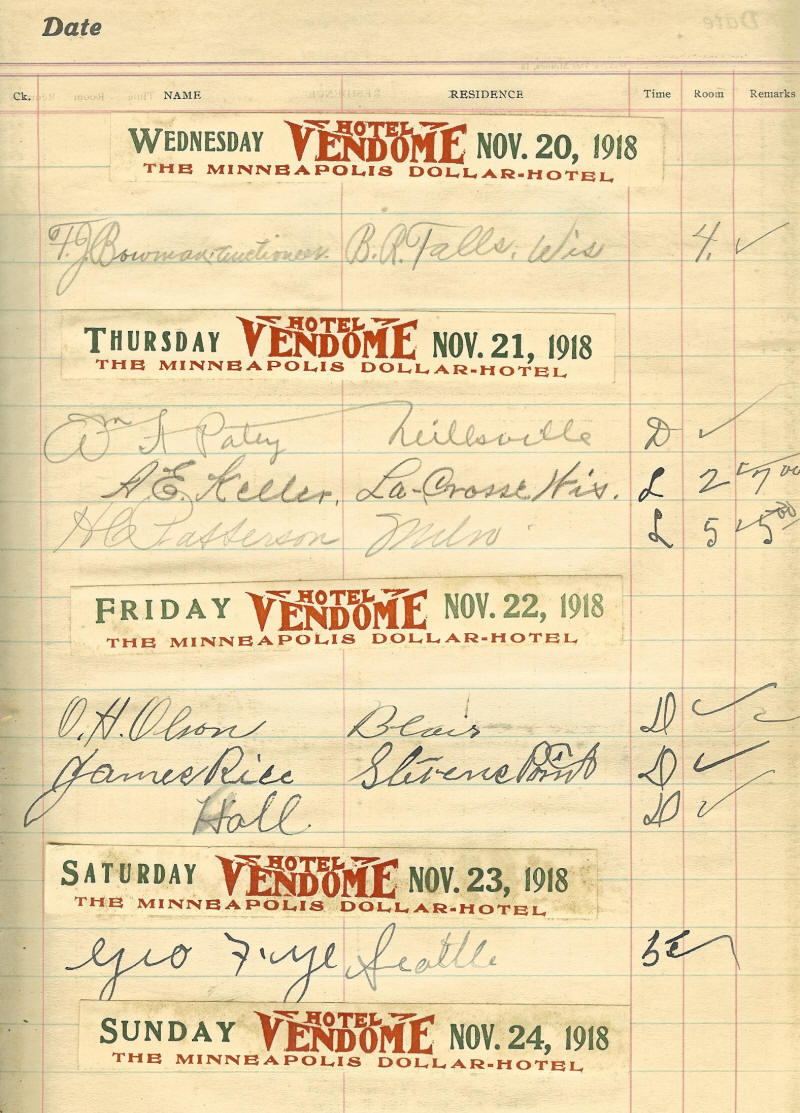 Date
Ck. NAME RESIDENCE Time Room Remarks
WEDNESDAY HOTEL VENDOME NOV. 20, 1918
THE MINNEAPOLIS DOLLAR-HOTEL
F. J. Bowman auctioneer. B. R. Falls, Wis 4. ✓
THURSDAY HOTEL VENDOME NOV. 21, 1918
THE MINNEAPOLIS DOLLAR-HOTEL
Wm Neillsville D ✓
A. E. Keller, La-Crosse Wis. L 2
H C Patterson Milw L 5
FRIDAY HOTEL VENDOME NOV. 22, 1918
THE MINNEAPOLIS DOLLAR-HOTEL
O. H. Olson Blair D ✓
James Rice Stevens Point D ✓
Hall D ✓
SATURDAY HOTEL VENDOME NOV. 23, 1918
THE MINNEAPOLIS DOLLAR-HOTEL
Geo Seattle
SUNDAY HOTEL VENDOME NOV. 24, 1918
THE MINNEAPOLIS DOLLAR-HOTEL